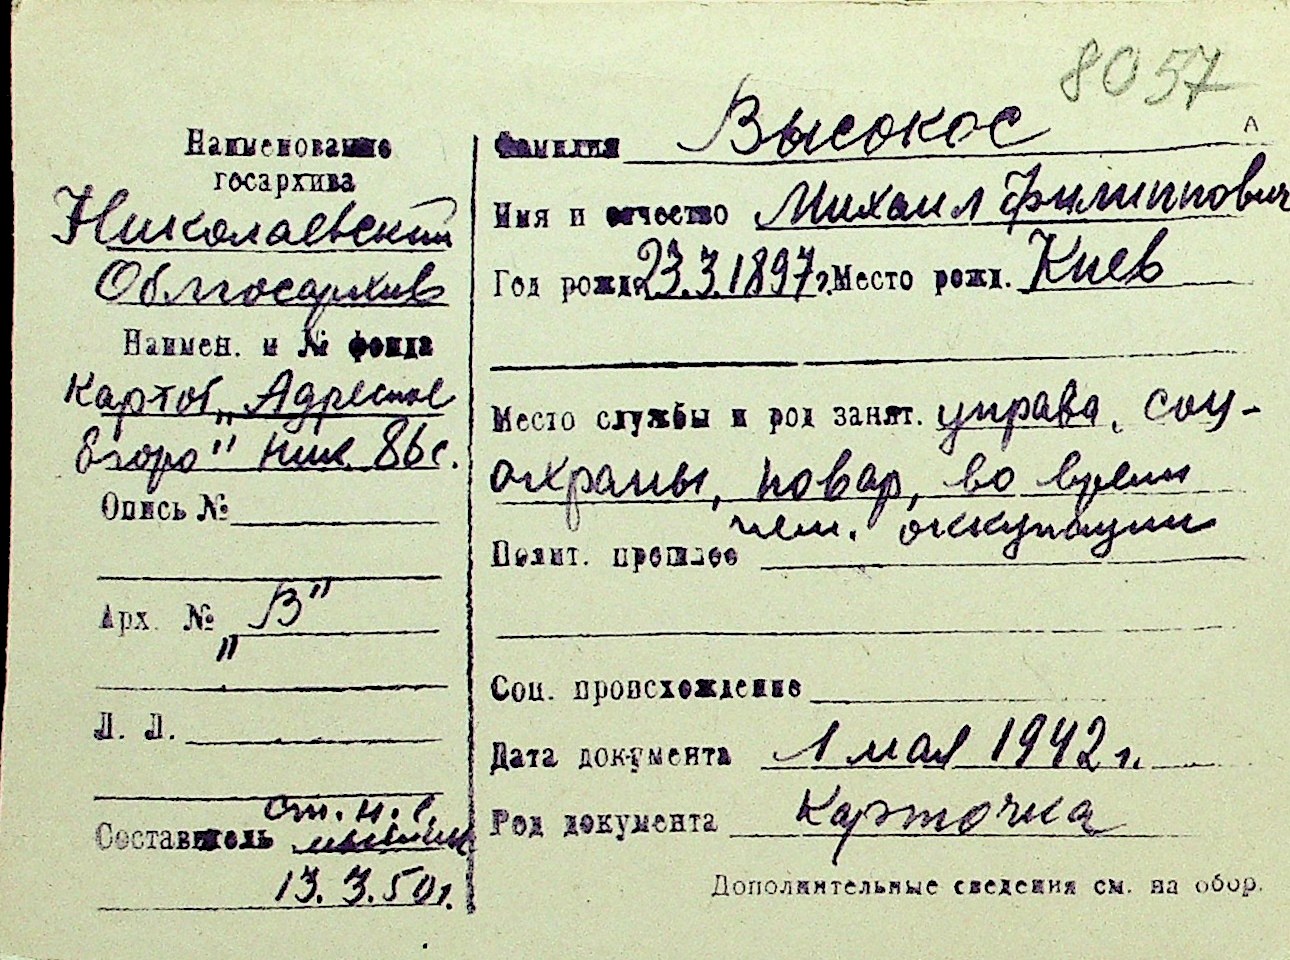 8057
Наименование
госархива
Николаевский
Облгосархив
Наимен. и № фонда
Картот. „Адресное
бюро" Ник. 86с.
Опись №
Арх. № „В"
Л. Л.
ст. н. с.
Составитель
13.3.50г.
Фамилия Высокос
А
Имя и отчество Михаил Филиппович
Год рожд. 23.3.1897г. Место рожд. Киев
Место службы и род занят. управа, соц-
охраны, повар, во время
нем. оккупации
Полит. прошлое
Соц. происхождение
Дата документа 1 мая 1942 г.
Род документа Карточка
Дополнительные сведения см. на обор.